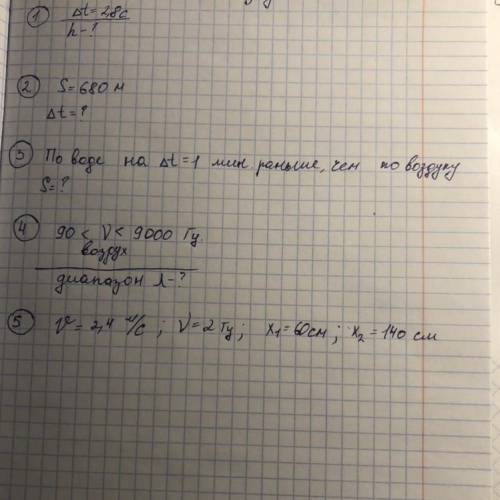 ① Δt = 2,8 с
h - ?
② S = 680 м
Δt = ?
③ По воде на Δt = 1 мин. раньше, чем по воздуху
S = ?
④ 90 < ν < 9000 Гц
воздух
диапазон λ - ?
⑤ v = 2,4 м/с ; ν = 2 Гц ; x₁ = 60 см ; x₂ = 140 см